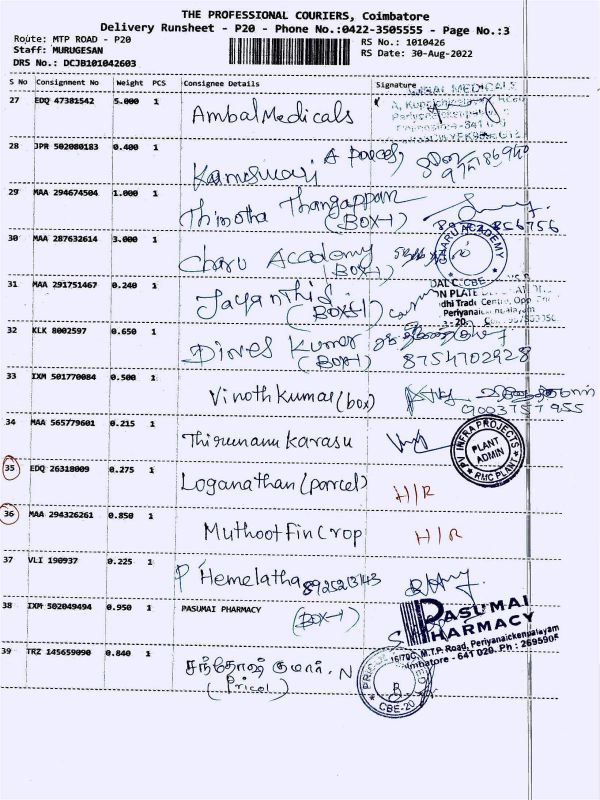 THE PROFESSIONAL COURIERS, Coimbatore
Delivery Runsheet - P20 - Phone No.:0422-3505555 - Page No.:3
Route: MTP ROAD - P20
RS No.: 1010426
Staff: MURUGESAN
RS Date: 30-Aug-2022
DRS No.: DCJB101042603
S No Consignment No Weight PCS Consignee Details Signature
27 EDQ 47381542 5.000 1 Ambal Medicals
28 JPR 502080183 0.400 1 Kameswari A parcel,
29 MAA 294674504 1.000 1 Thimotha Thangappan
(BOX-1)
30 MAA 287632614 3.000 1 Charu Academy
(BOX-1)
CHARU ACADEMY
CBE-
31 MAA 291751467 0.240 1 Jayanthi
(BOX-1)
32 KLK 8002597 0.650 1 Dines Kumar
(BOX-1) 8754702928
33 IXM 501770084 0.500 1 Vinoth Kumar (box)
9003757955
34 MAA 565779601 0.215 1 Thirunavu Karasu
PV INFRA PROJECTS
PLANT
ADMIN
RMC PLANT
35 EDQ 26318009 0.275 1 Loganathan (parcel) H/R
36 MAA 294326261 0.850 1 Muthoot Fin Crop H/R
37 VLI 190937 0.225 1 P Hemelatha 8925213143
38 IXM 502049494 0.950 1 PASUMAI PHARMACY (BOX-1)
PASUMAI
PHARMACY
16/70C, M.T.P. Road, Periyanaickenpalayam
Coimbatore - 641 020. Ph : 2695905
39 TRZ 145659090 0.840 1 சந்தோஷ் குமார். N
(Pricol)
CBE-20